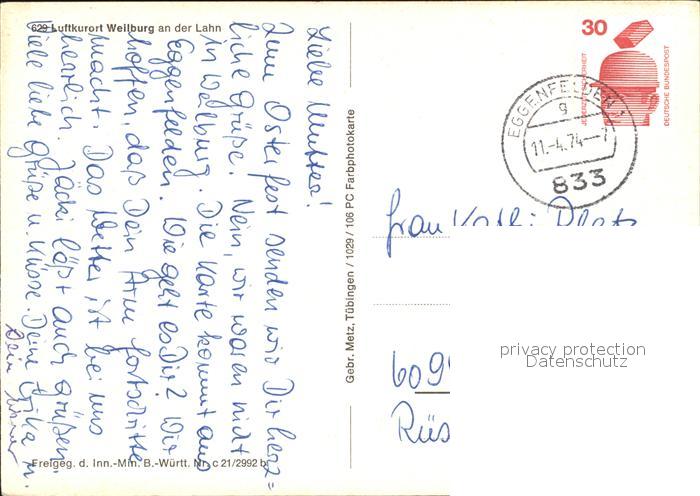 629 Luftkurort Weilburg an der Lahn
Liebe Mutter!
Zum Osterfest senden wir Dir herz=
liche Grüße. Nein, wir waren nicht
in Weilburg. Die Karte kommt aus
Eggenfelden. Wie geht es Dir? Wir
hoffen, daß Dein Arm fortschritte
macht. Das Wetter ist bei uns
herrlich. Jäcki läßt auch grüßen.
Viele liebe Grüße u. Küsse. Deine Erika u.
Dein
Freigeg. d. Inn.-Min. B.-Württ. Nr. c 21/2992 b
Gebr. Metz, Tübingen / 1029 / 106 PC Farbphotokarte
30
JEDERZEIT SICHERHEIT
DEUTSCHE BUNDESPOST
EGGENFELDEN 1
g
11.-4.74--7
833
Frau
609
Rüs
privacy protection
Datenschutz